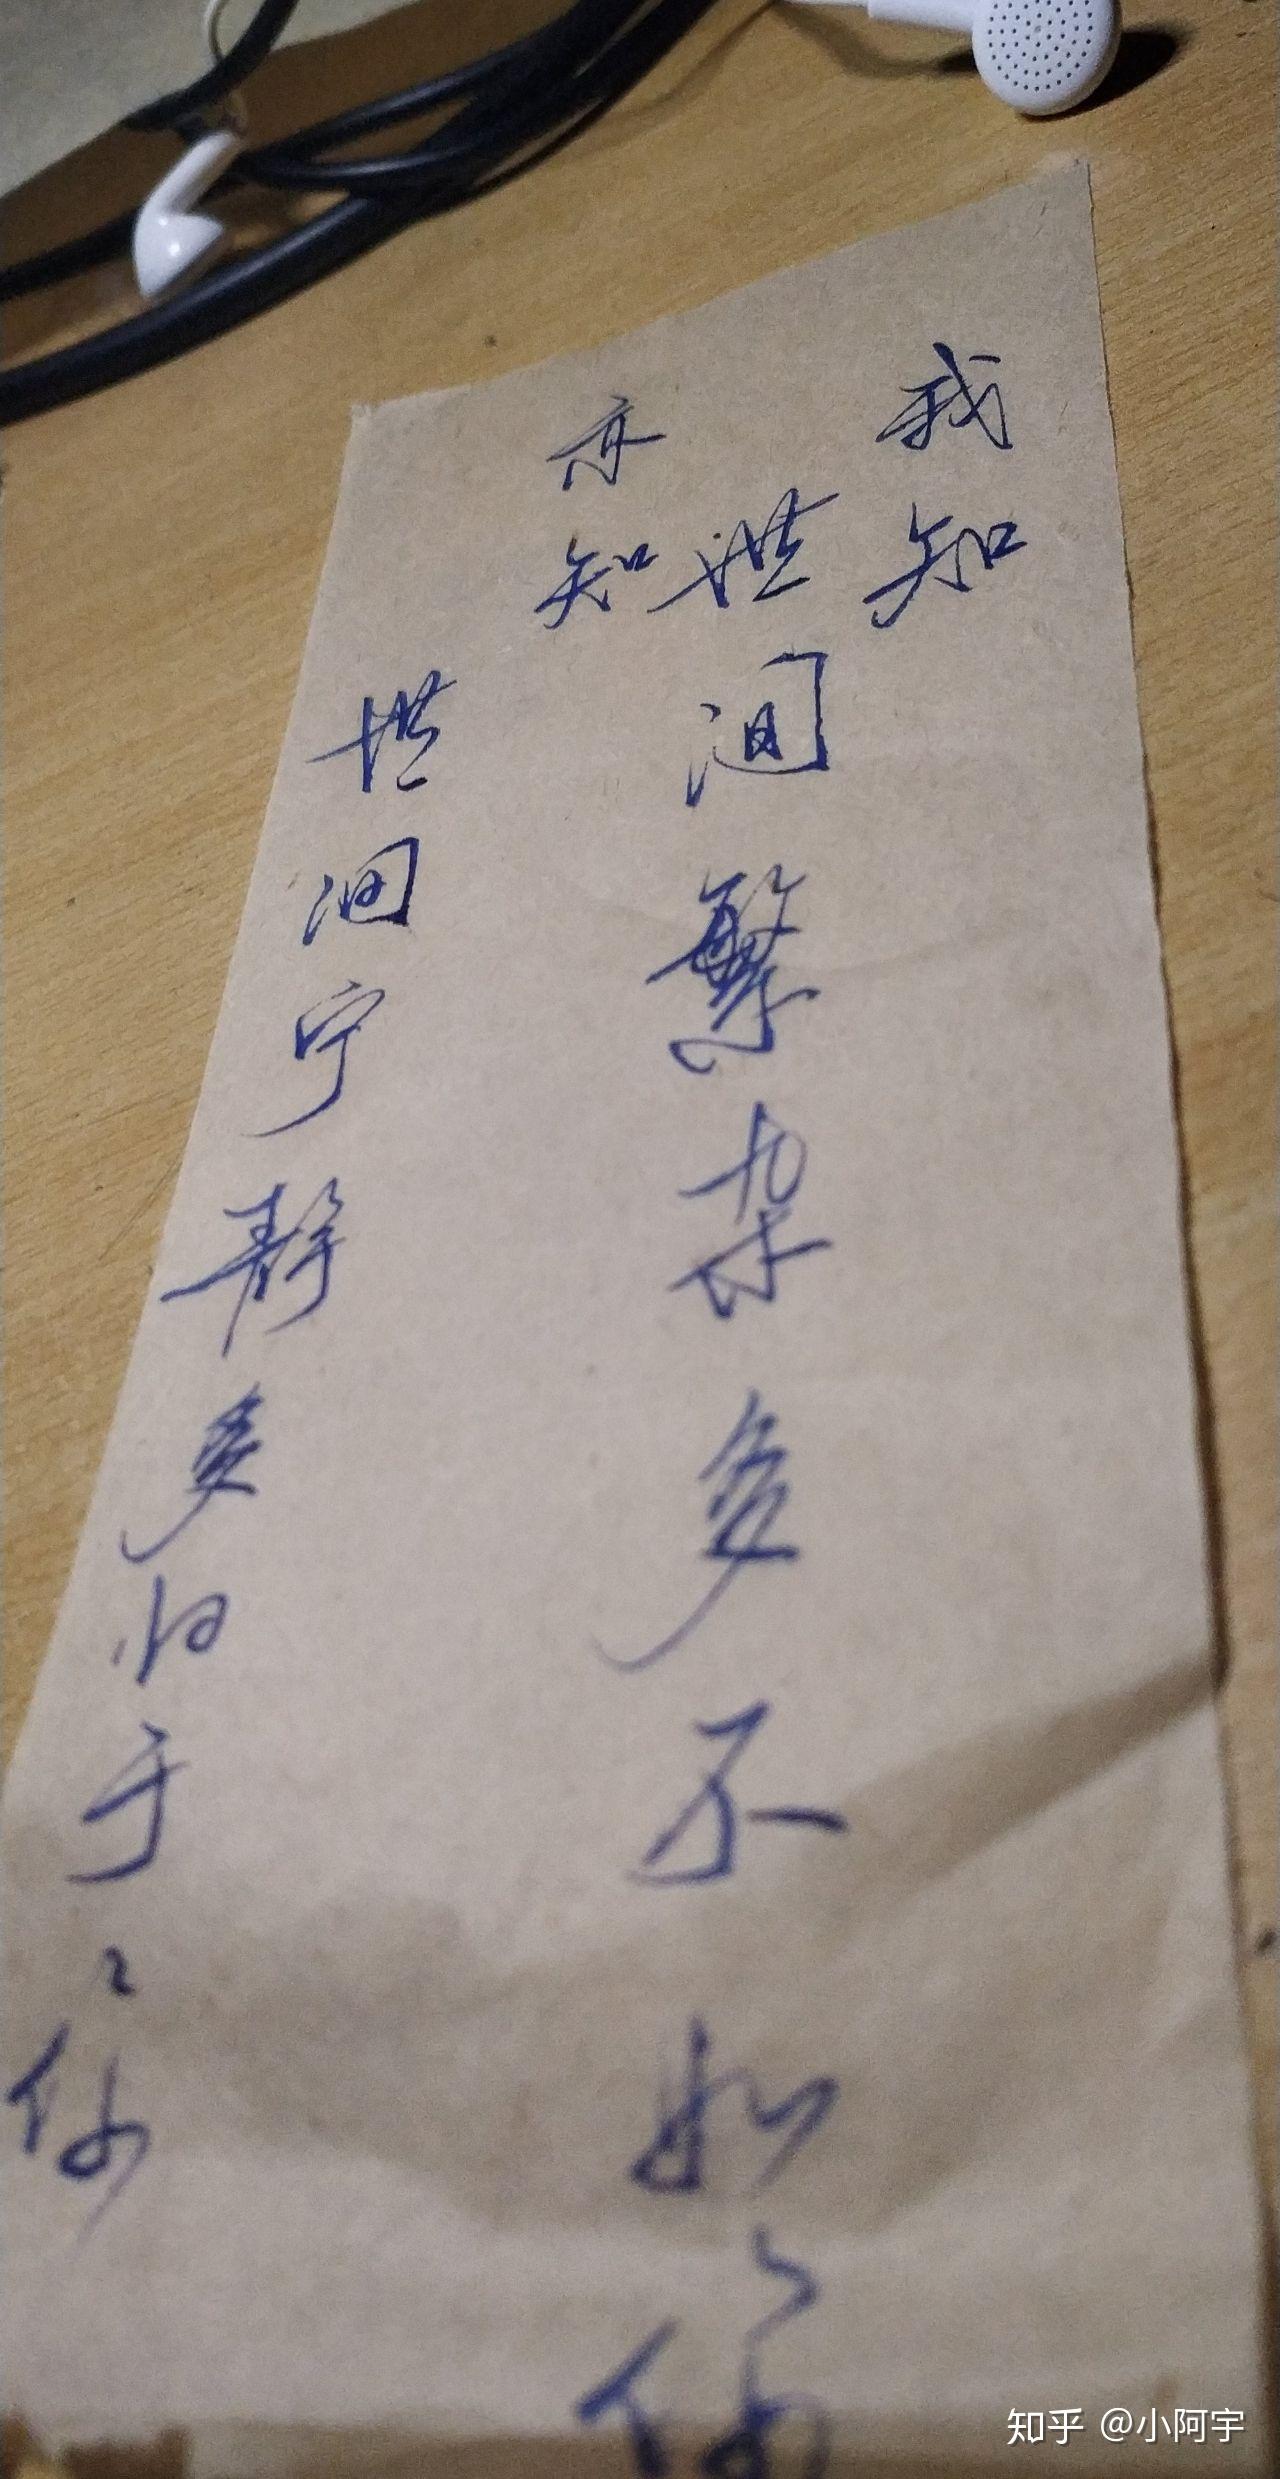 我知
世间繁杂多不如你
亦知
世间宁静多归于你
知乎 @小阿宇